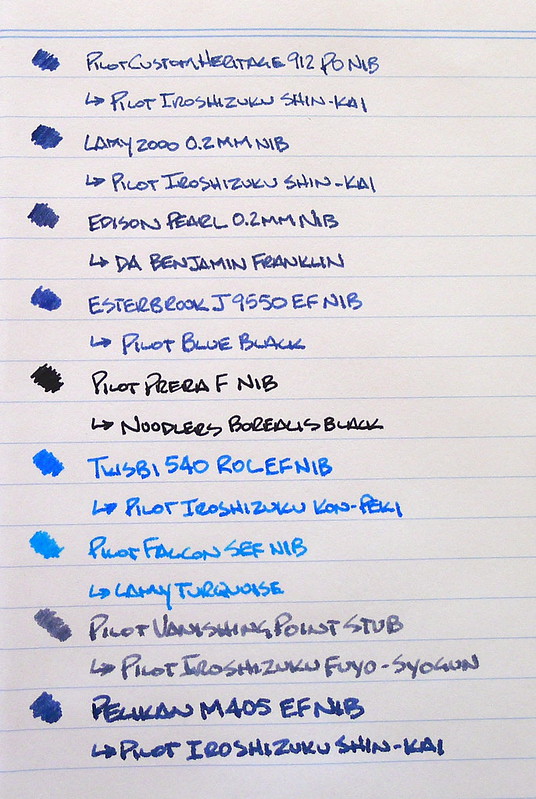 Pilot Custom Heritage 912 PO Nib
↳ Pilot Iroshizuku Shin-Kai
Lamy 2000 0.2mm Nib
↳ Pilot Iroshizuku Shin-Kai
Edison Pearl 0.2mm Nib
↳ DA Benjamin Franklin
Esterbrook J 9550 EF Nib
↳ Pilot Blue Black
Pilot Prera F Nib
↳ Noodlers Borealis Black
TWSBI 540 ROLEF Nib
↳ Pilot Iroshizuku Kon-Peki
Pilot Falcon SEF Nib
↳ Lamy Turquoise
Pilot Vanishing Point Stub
↳ Pilot Iroshizuku Fuyo-Syogun
Pelikan M405 EF Nib
↳ Pilot Iroshizuku Shin-Kai